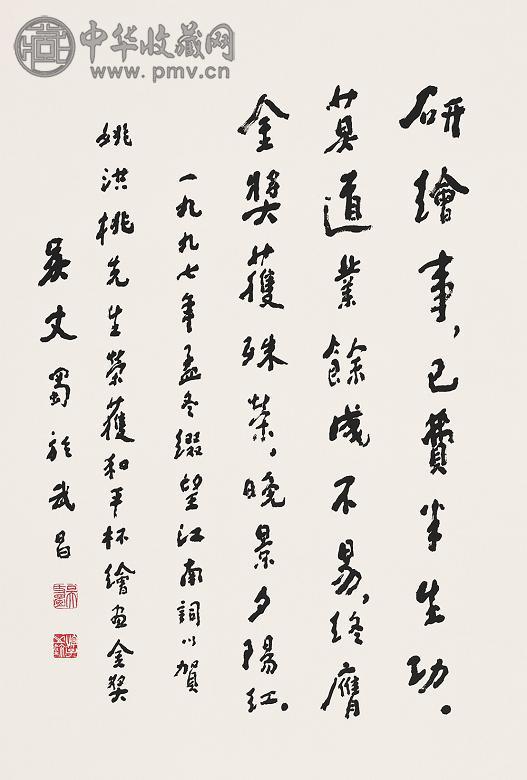 中华收藏网
www.pmv.cn
研繪事，已費半生功。
莫道業餘成不易，終膺
金獎獲殊榮。晚景夕陽紅。
一九九七年孟冬綴望江南詞以賀
姚洪桃先生榮獲和平杯繪画金奖
吳丈蜀於武昌